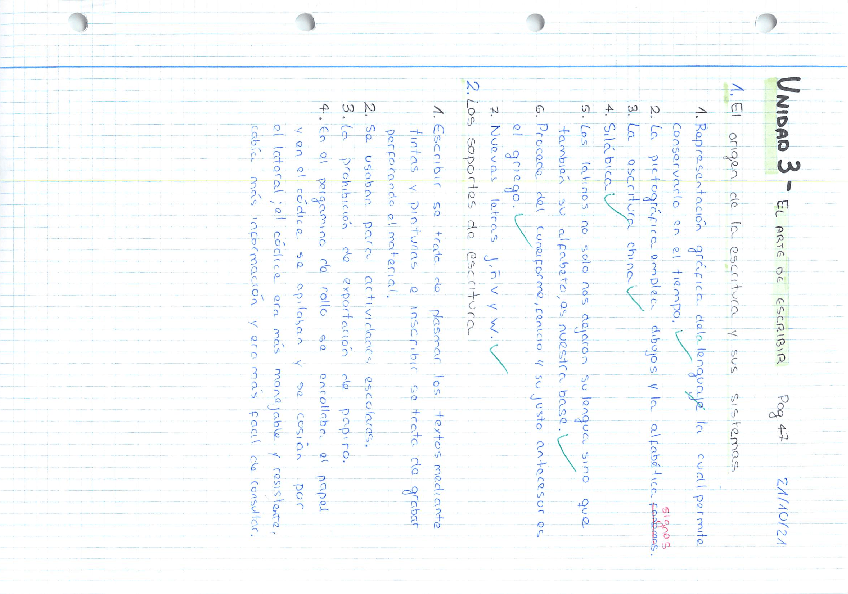 UNIDAD 3 - EL ARTE DE ESCRIBIR Pag 47 21/10/21
1. El origen de la escritura y sus sistemas
1. Representación gráfica de la lenguaje la cual permite
conservarla en el tiempo.
2. La pictográfica emplea dibujos y la alfabética fonemas.
signos
3. La escritura china
4. Silábica
5. Los latinos no solo nos dejaron su lengua sino que
también su alfabeto, es nuestra base.
6. Procede del cuneiforme, fenicio y su justo antecesor es
el griego.
7. Nuevas letras j, ñ, v y w.
2. Los soportes de escritura
1. Escribir se trata de plasmar los textos mediante
tintas y pinturas e inscribir se trata de grabar
perforando el material.
2. Se usaban para actividades escolares.
3. La prohibición de exportación de papiro.
4. En el pergamino de rollo se enrollaba el papel
y en el códice se apilaban y se cosían por
el lateral; el códice era más manejable y resistente,
cabía más información y era más fácil de consultar.